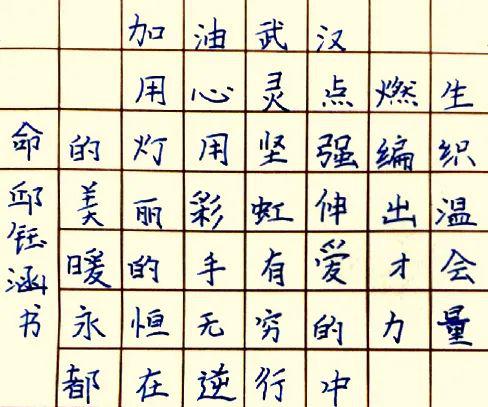 加油武汉
用心灵点燃生
命的灯用坚强编织
美丽彩虹伸出温
暖的手有爱才会
永恒无穷的力量
都在逆行中
邱钰涵书